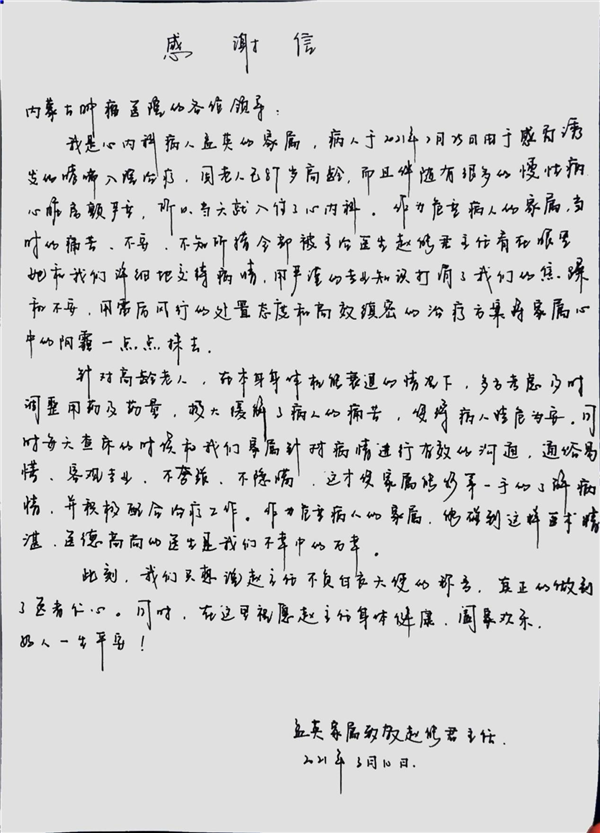 感谢信
内蒙古肿瘤医院的各位领导：
我是心内科病人孟英的家属，病人于2021年2月25日由于感冒诱
发的哮喘入院治疗，因老人已87岁高龄，而且伴随有很多的慢性病
心脏房颤严重，所以当天就入住了心内科。作为危重病人的家属，当
时的痛苦、不安、不知所措全部被主治医生赵修君主任看在眼里
她和我们详细地交待病情，用严谨的专业知识打消了我们的焦躁
和不安，用雷厉可行的处置态度和高效缜密的治疗方案将家属心
中的阴霾一点点抹去。
针对高龄老人，在本身身体机能衰退的情况下，多方考虑及时
调整用药及药量，极大缓解了病人的痛苦，使得病人转危为安。同
时每天查床的时候和我们家属针对病情进行有效的沟通，通俗易
懂、客观专业，不夸张、不隐瞒，这才使家属能够第一手的了解病
情，并积极配合治疗工作。作为危重病人的家属，能碰到这样医术精
湛、医德高尚的医生是我们不幸中的万幸。
此刻，我们只想说赵主任不负白衣天使的称号，真正的做到
了医者仁心。同时，在这里祝愿赵主任身体健康，阖家欢乐，
好人一生平安！
孟英家属致敬赵修君主任.
2021年3月10日.